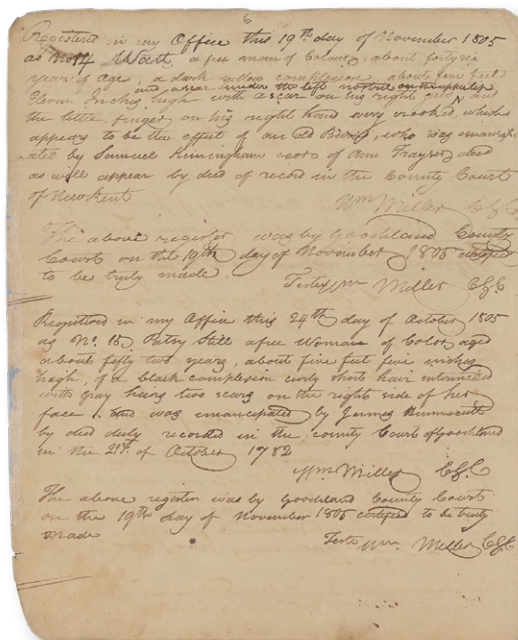 6
Registered in my Office this 19th day of November 1805
as No 14 Watt a free man of Colour, about forty six
years of age, a dark yellow complexion, about five feet
and a scar under the left nostril on the upper lip
Eleven Inches high with a scar on his right and
the little finger on his right hand very crooked, which
appears to be the effect of an old who was emancip
ated by Samuel of Ann decd
as will appear by deed of record in the County Court
of New Kent
Wm Miller CGC
The above register was by Goochland County
Court on the 19th day of November 1805 certified
to be truly made.
Teste Wm Miller CGC
Registered in my Office this 24th day of October 1805
as No. 15 Patsy a free Woman of Color aged
about fifty two years, about five feet five inches
high, of a black complexion curly short hair intermixed
with gray hairs two scars on the right side of her
face, and was emancipated by James
by deed duly recorded in the county Court of Goochland
on the 21st of October 1782
Wm Miller CGC
The above register was by Goochland County Court
on the 19th day of November 1805 certified to be truly
made
Teste Wm. Miller CGC